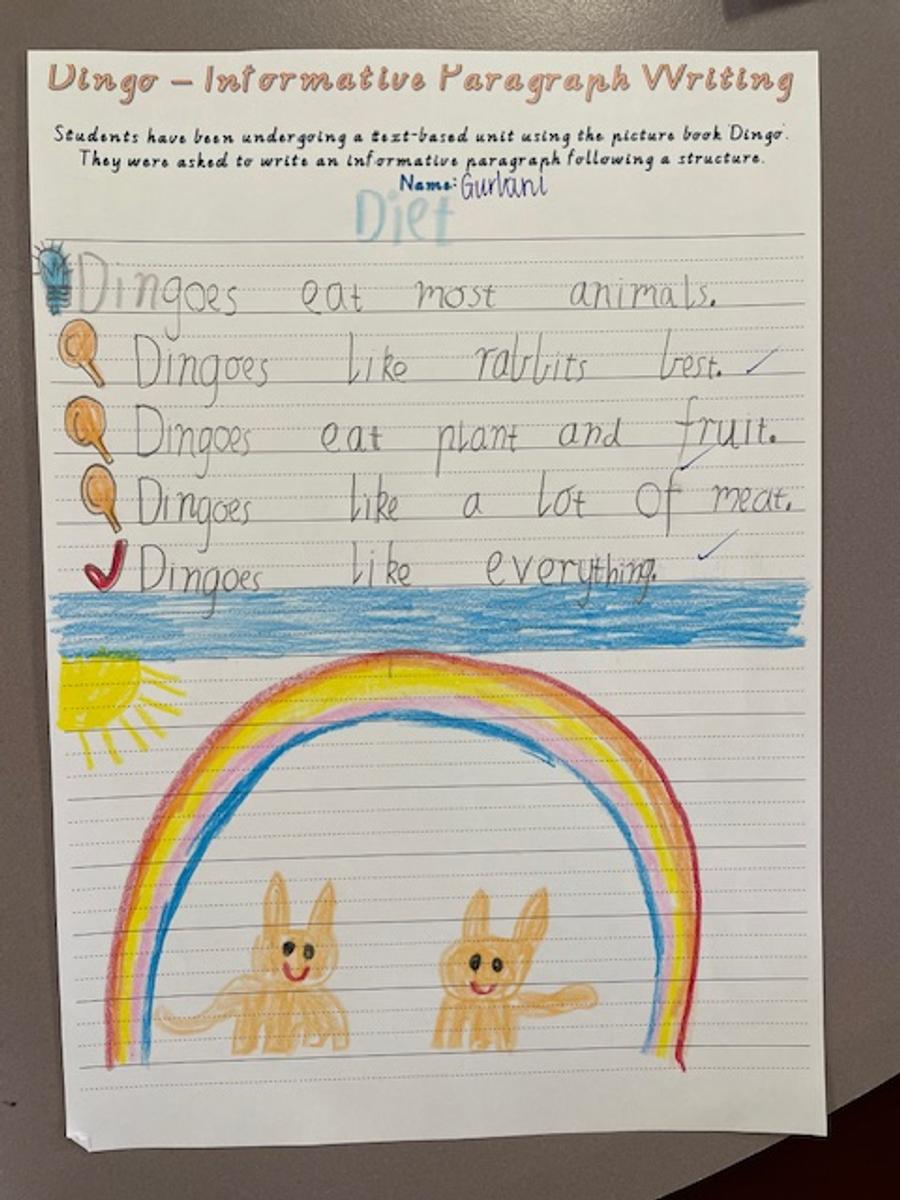 Dingo – Informative Paragraph Writing
Students have been undergoing a text-based unit using the picture book 'Dingo'.
They were asked to write an informative paragraph following a structure.
Name: Gurlani
Diet
Dingoes eat most animals.
Dingoes like rabbits best.
Dingoes eat plant and fruit.
Dingoes like a lot of meat.
Dingoes like everything.